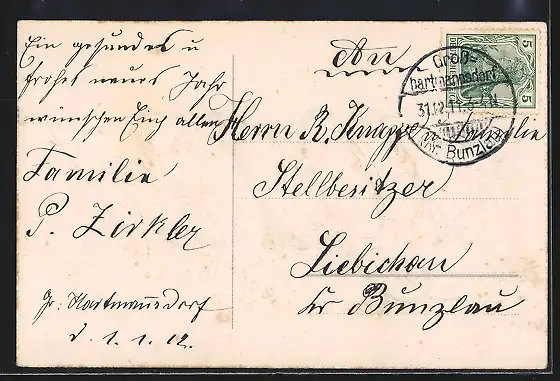 Ein gesundes u
frohes neues Jahr
wünschen Euch allen
Familie
P. Zirkler
Gr. Hartmannsdorf
d. 1.1.12.
An
Herrn R. Knappe u. Familie
Stellbesitzer
Liebichau
Kr Bunzlau
5
5
DEUTSCHES REICH
Groß-
hartmannsdorf
31.12.11
Kr. Bunzlau